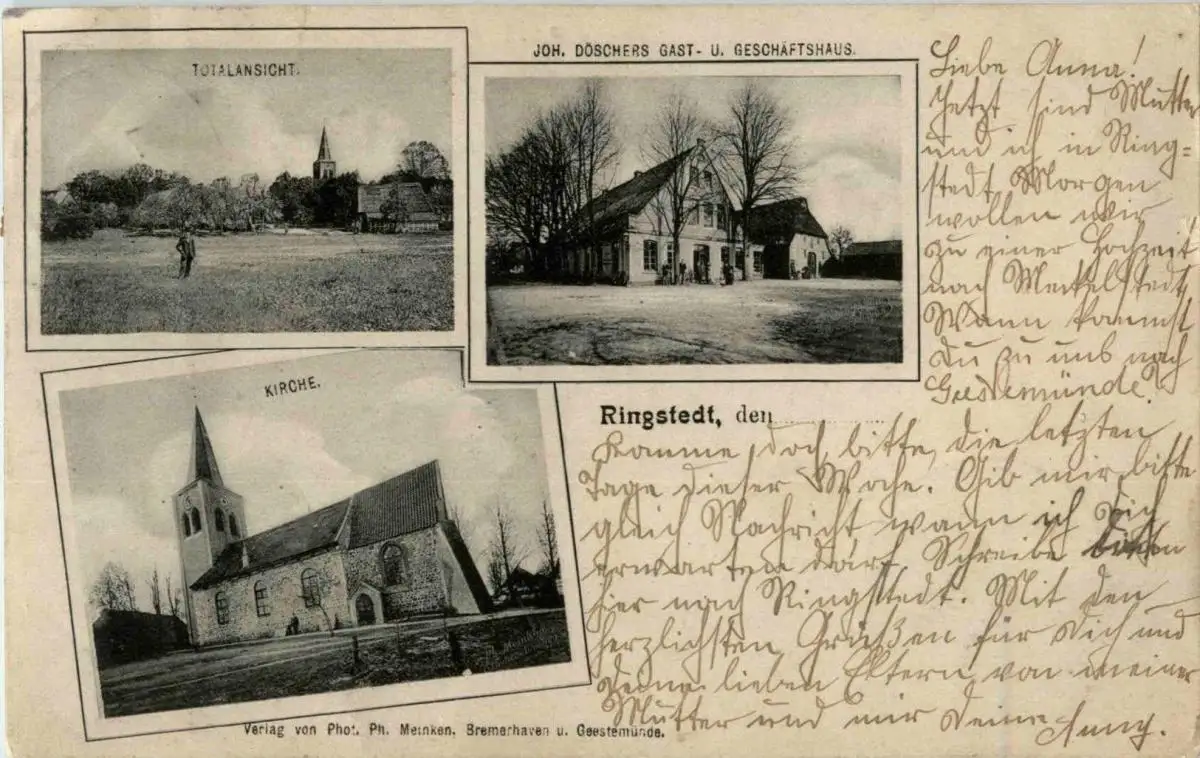 TOTALANSICHT.
JOH. DÖSCHERS GAST- U. GESCHÄFTSHAUS.
KIRCHE.
Liebe Anna!
Jetzt sind Mutter
und ich in Ring=
stedt. Morgen
wollen wir
zu einer Hochzeit
nach Meckelstedt.
Wann kommst
Du zu uns nach
Geestemünde?
Ringstedt, den
Komme doch bitte, die letzten
Tage dieser Woche. Gib mir bitte
gleich Nachricht wann ich Dich
erwarten darf. Schreibe
hier nach Ringstedt. Mit den
herzlichsten Grüßen für Dich und
Deine lieben Eltern von meiner
Mutter und mir Deine
Verlag von Phot. Ph. Meinken, Bremerhaven u. Geestemünde.